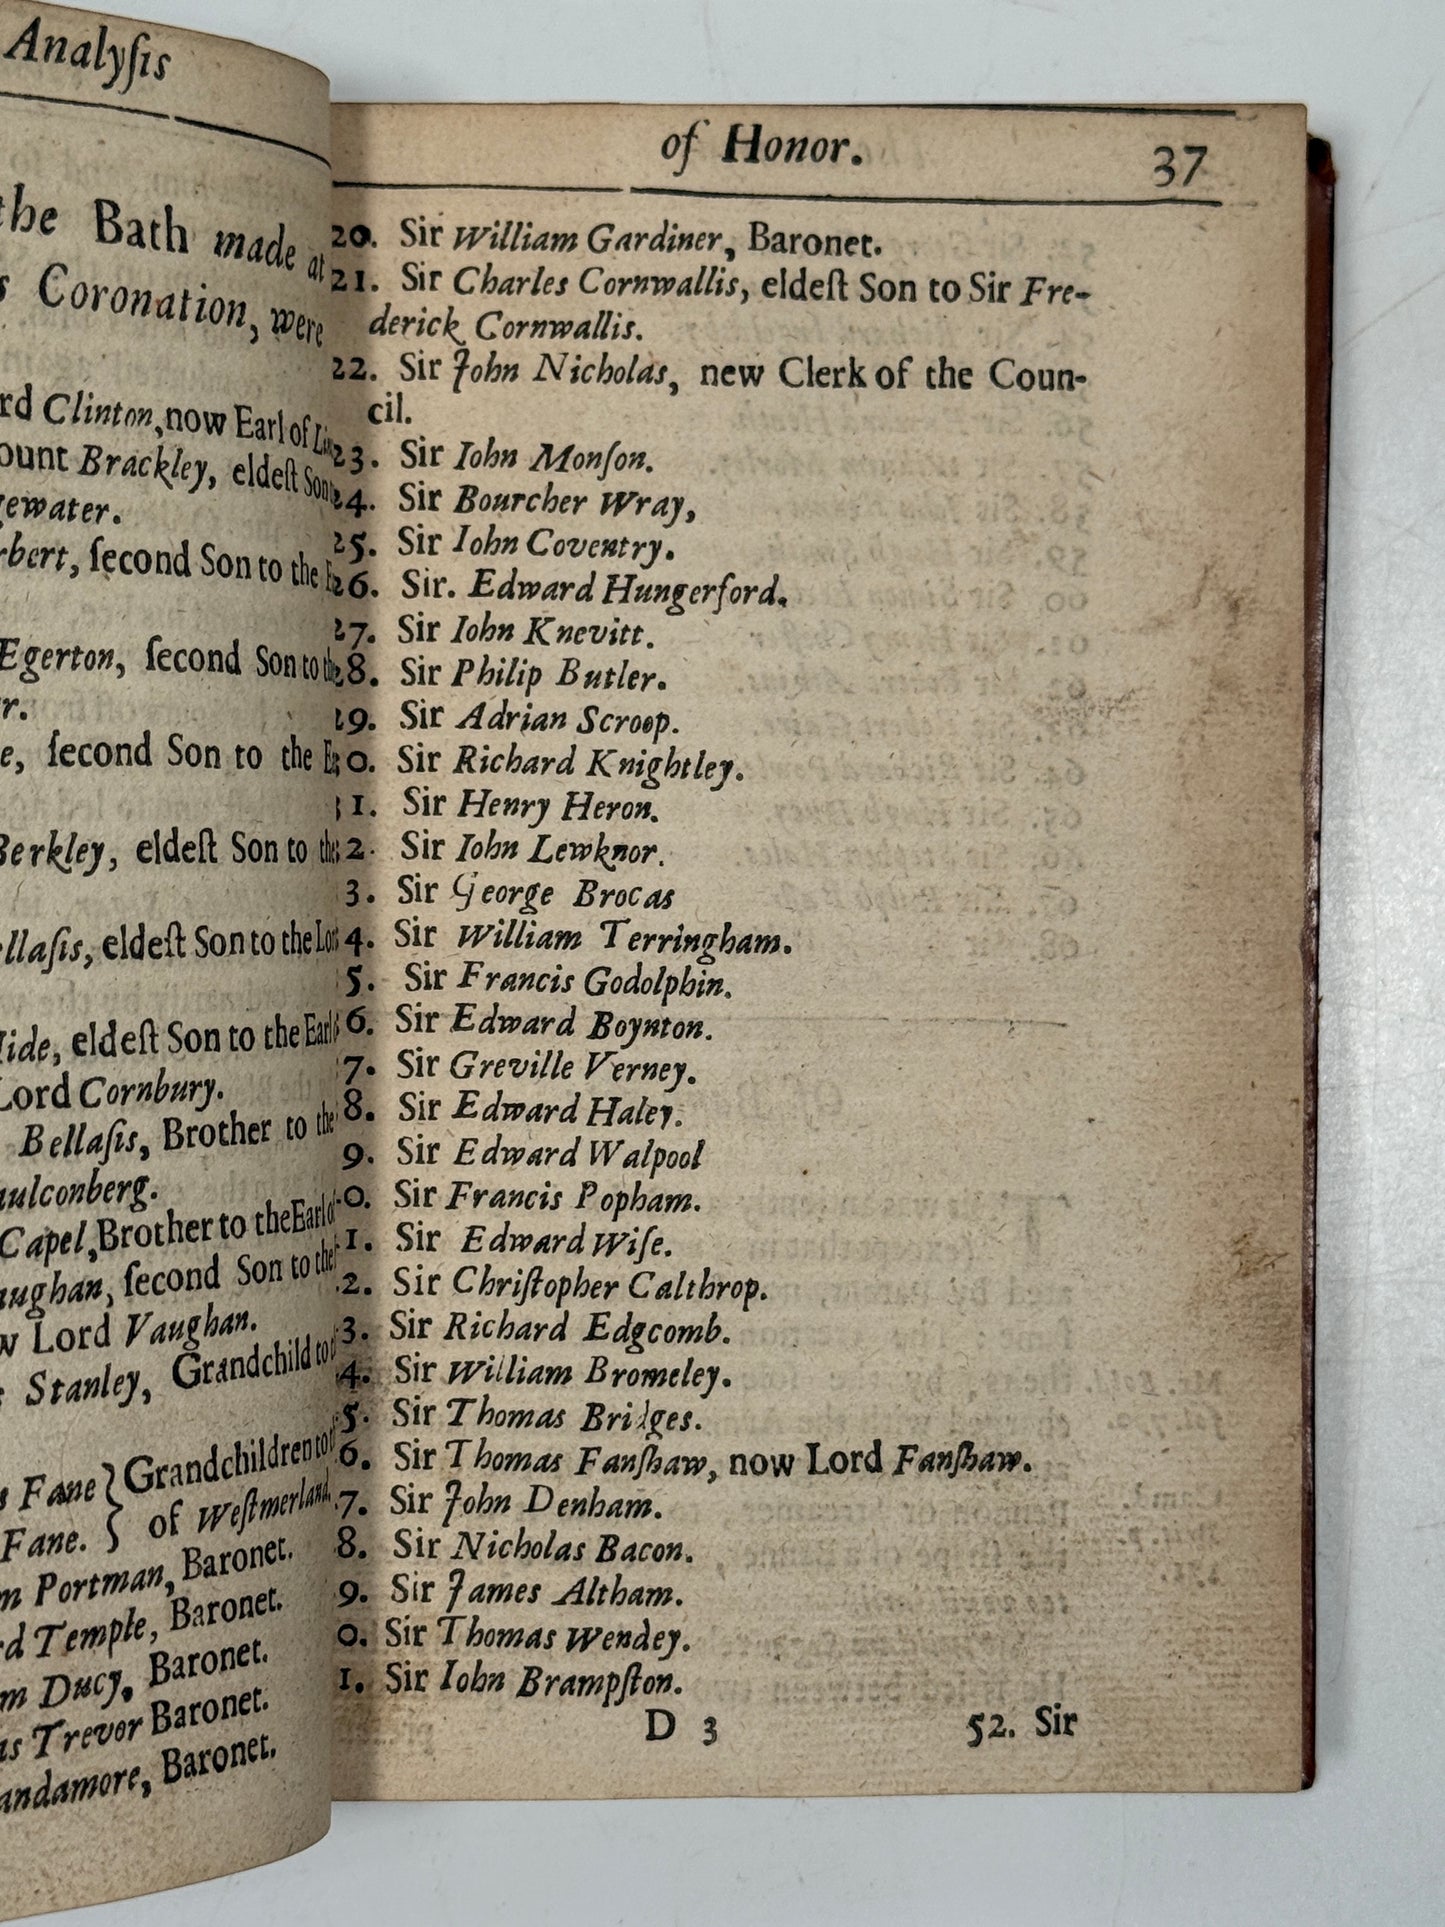 Analyſis
the Bath made at
Coronation, were
Clinton, now Earl of
Brackley, eldeſt Son
ſecond Son to the
Egerton, ſecond Son to the
ſecond Son to the
Berkley, eldeſt Son to the
eldeſt Son to the
eldeſt Son to the Earl
Lord Cornbury.
Bellaſis, Brother to the
Capel, Brother to the Earl of
ſecond Son to the
Lord Vaughan.
Stanley, Grandchild to
Fane } Grandchildren to
Fane. } of Weſtmerland.
Portman, Baronet.
Temple, Baronet.
Ducy, Baronet.
Trevor Baronet.
Baronet.
of Honor. 37
20. Sir William Gardiner, Baronet.
21. Sir Charles Cornwallis, eldeſt Son to Sir Fre-
derick Cornwallis.
22. Sir John Nicholas, new Clerk of the Coun-
cil.
23. Sir Iohn Monſon.
24. Sir Bourcher Wray,
25. Sir Iohn Coventry.
26. Sir. Edward Hungerford.
27. Sir Iohn Knevitt.
8. Sir Philip Butler.
29. Sir Adrian Scroop.
0. Sir Richard Knightley.
1. Sir Henry Heron.
2. Sir Iohn Lewknor.
3. Sir George Brocas
4. Sir William Terringham.
5. Sir Francis Godolphin.
6. Sir Edward Boynton.
7. Sir Greville Verney.
8. Sir Edward Haley.
9. Sir Edward Walpool
0. Sir Francis Popham.
1. Sir Edward Wiſe.
2. Sir Chriſtopher Calthrop.
3. Sir Richard Edgcomb.
4. Sir William Bromeley.
5. Sir Thomas Bridges.
6. Sir Thomas Fanſhaw, now Lord Fanſhaw.
7. Sir John Denham.
8. Sir Nicholas Bacon.
9. Sir James Altham.
0. Sir Thomas Wendey.
1. Sir Iohn Brampſton.
D 3 52. Sir